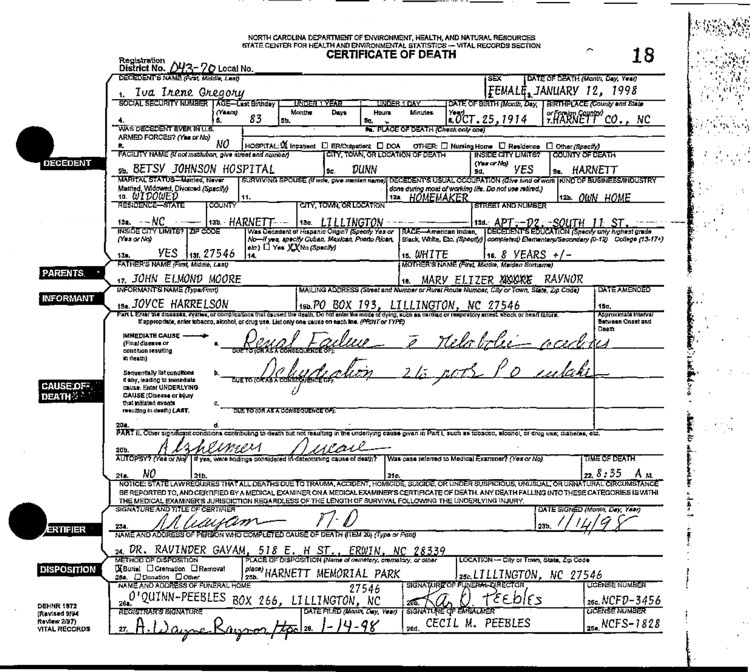 NORTH CAROLINA DEPARTMENT OF ENVIRONMENT, HEALTH, AND NATURAL RESOURCES
STATE CENTER FOR HEALTH AND ENVIRONMENTAL STATISTICS — VITAL RECORDS SECTION
CERTIFICATE OF DEATH
18
Registration
District No. 043-70 Local No.
DECEDENT'S NAME (First, Middle, Last) SEX DATE OF DEATH (Month, Day, Year)
1. Iva Irene Gregory FEMALE JANUARY 12, 1998
SOCIAL SECURITY NUMBER AGE—Last Birthday (Years) UNDER 1 YEAR UNDER 1 DAY DATE OF BIRTH (Month, Day, Year) BIRTHPLACE (County and State or Foreign Country)
Months Days Hours Minutes
4. 5. 83 5b. 5c. 6. OCT.25,1914 7. HARNETT CO., NC
WAS DECEDENT EVER IN U.S. ARMED FORCES? (Yes or No) 9a. PLACE OF DEATH (Check only one)
8. NO HOSPITAL: Inpatient ER/Outpatient DOA OTHER: Nursing Home Residence Other (Specify)
DECEDENT
FACILITY NAME (If not institution, give street and number) CITY, TOWN, OR LOCATION OF DEATH INSIDE CITY LIMITS? (Yes or No) COUNTY OF DEATH
9b. BETSY JOHNSON HOSPITAL 9c. DUNN 9d. YES 9e. HARNETT
MARITAL STATUS—Married, Never Married, Widowed, Divorced (Specify) SURVIVING SPOUSE (If wife, give maiden name) DECEDENT'S USUAL OCCUPATION (Give kind of work done during most of working life. Do not use retired.) KIND OF BUSINESS/INDUSTRY
10. WIDOWED 11. 12a. HOMEMAKER 12b. OWN HOME
RESIDENCE—STATE COUNTY CITY, TOWN, OR LOCATION STREET AND NUMBER
13a. NC 13b. HARNETT 13c. LILLINGTON 13d. APT. D2 SOUTH 11 ST.
INSIDE CITY LIMITS? (Yes or No) ZIP CODE Was Decedent of Hispanic Origin? (Specify Yes or No—If yes, specify Cuban, Mexican, Puerto Rican, etc.) Yes XX No (Specify) RACE—American Indian, Black, White, Etc. (Specify) DECEDENT'S EDUCATION (Specify only highest grade completed) Elementary/Secondary (0-12) College (13-17+)
13e. YES 13f. 27546 14. 15. WHITE 16. 8 YEARS +/-
PARENTS
FATHER'S NAME (First, Middle, Last) MOTHER'S NAME (First, Middle, Maiden Surname)
17. JOHN ELMOND MOORE 18. MARY ELIZER RAYNOR
INFORMANT
INFORMANT'S NAME (Type/Print) MAILING ADDRESS (Street and Number or Rural Route Number, City or Town, State, Zip Code) DATE AMENDED
19a. JOYCE HARRELSON 19b. PO BOX 193, LILLINGTON, NC 27546 19c.
Part I. Enter the diseases, injuries, or complications that caused the death. Do not enter the mode of dying, such as cardiac or respiratory arrest, shock or heart failure.
If appropriate, enter tobacco, alcohol, or drug use. List only one cause on each line. (PRINT or TYPE)
Approximate Interval Between Onset and Death
IMMEDIATE CAUSE (Final disease or condition resulting in death) a. Renal Failure c Metabolic acidosis
DUE TO (OR AS A CONSEQUENCE OF):
Sequentially list conditions if any, leading to immediate cause. Enter UNDERLYING CAUSE (Disease or injury that initiated events resulting in death) LAST.
b. Dehydration 2° to poor PO intake
DUE TO (OR AS A CONSEQUENCE OF):
c.
DUE TO (OR AS A CONSEQUENCE OF):
CAUSE OF DEATH
20a. d.
PART II. Other significant conditions contributing to death but not resulting in the underlying cause given in Part I, such as tobacco, alcohol, or drug use; diabetes, etc.
20b. Alzheimers Disease
AUTOPSY? (Yes or No) If yes, were findings considered in determining cause of death? Was case referred to Medical Examiner? (Yes or No) TIME OF DEATH
21a. NO 21b. 21c. 22. 8:35 A M.
NOTICE: STATE LAW REQUIRES THAT ALL DEATHS DUE TO TRAUMA, ACCIDENT, HOMICIDE, SUICIDE, OR UNDER SUSPICIOUS, UNUSUAL, OR UNNATURAL CIRCUMSTANCE
BE REPORTED TO, AND CERTIFIED BY A MEDICAL EXAMINER ON A MEDICAL EXAMINER'S CERTIFICATE OF DEATH. ANY DEATH FALLING INTO THESE CATEGORIES IS WITHI
THE MEDICAL EXAMINER'S JURISDICTION REGARDLESS OF THE LENGTH OF SURVIVAL FOLLOWING THE UNDERLYING INJURY.
ERTIFIER
SIGNATURE AND TITLE OF CERTIFIER DATE SIGNED (Month, Day, Year)
23a. M.D 23b. 1/14/98
NAME AND ADDRESS OF PERSON WHO COMPLETED CAUSE OF DEATH (ITEM 20) (Type or Print)
24. DR. RAVINDER GAYAM, 518 E. H ST., ERWIN, NC 28339
DISPOSITION
METHOD OF DISPOSITION PLACE OF DISPOSITION (Name of cemetery, crematory, or other place) LOCATION — City or Town, State, Zip Code
Burial Cremation Removal
25a. Donation Other 25b. HARNETT MEMORIAL PARK 25c. LILLINGTON, NC 27546
NAME AND ADDRESS OF FUNERAL HOME 27546 SIGNATURE OF FUNERAL DIRECTOR LICENSE NUMBER
26a. O'QUINN-PEEBLES BOX 266, LILLINGTON, NC 26b. Peebles 26c. NCFD-3456
REGISTRAR'S SIGNATURE DATE FILED (Month, Day, Year) SIGNATURE OF EMBALMER LICENSE NUMBER
27. A. Wayne Raynor 28. 1-14-98 26d. CECIL M. PEEBLES 26e. NCFS-1828
DEHNR 1872
(Revised 9/94
Review 2/97)
VITAL RECORDS